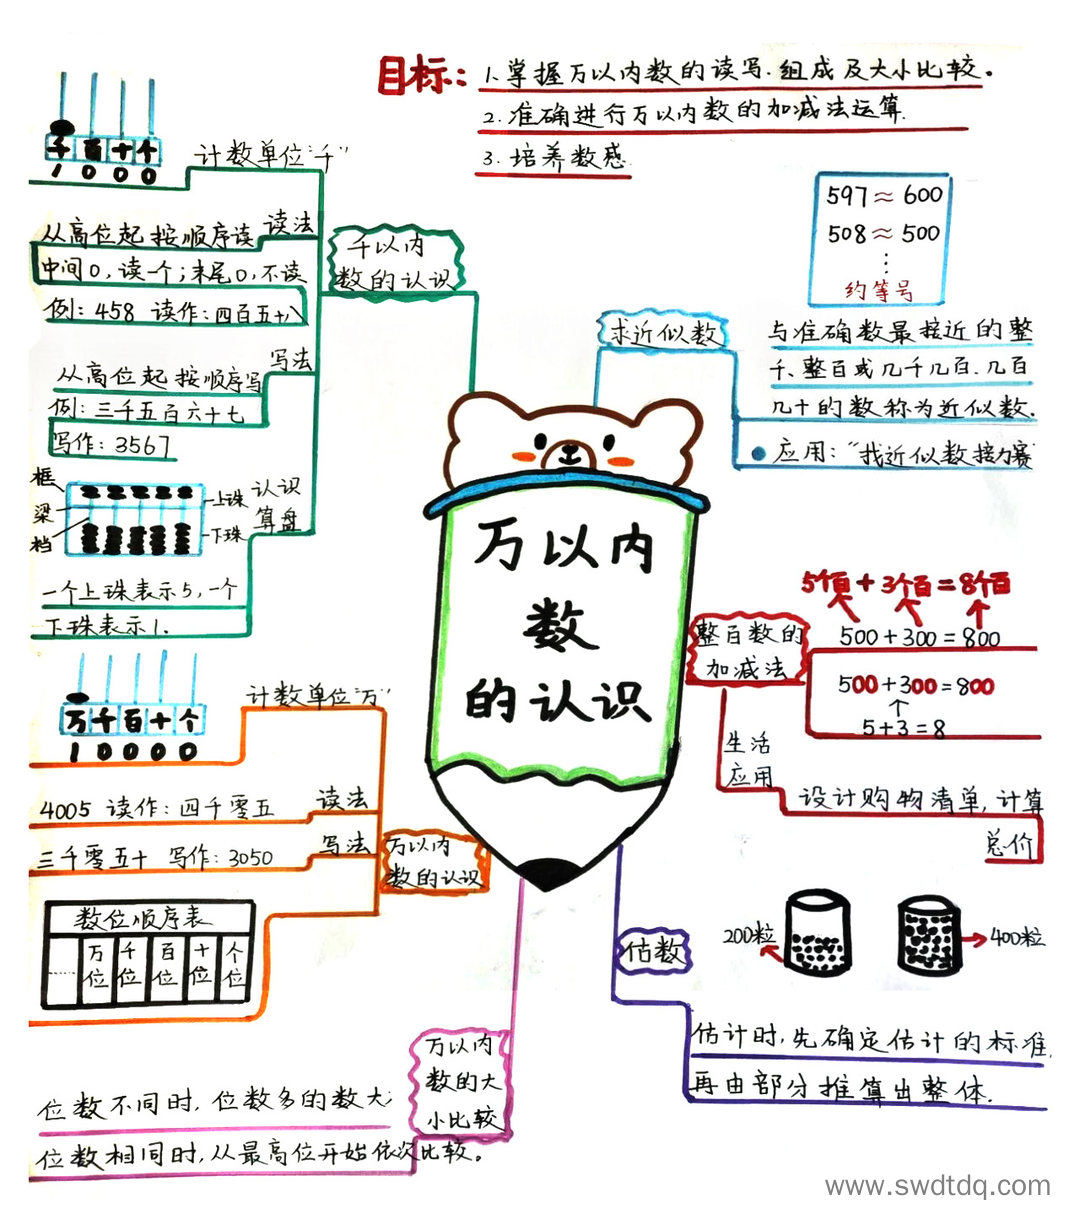 目标：1.掌握万以内数的读写.组成及大小比较。
2.准确进行万以内数的加减法运算.
3.培养数感.
千百十个
1000
计数单位"千"
读法
从高位起按顺序读
中间0,读一个;末尾0,不读
例：458 读作：四百五十八
写法
从高位起按顺序写
例：三千五百六十七
写作：3567
千以内
数的认识
框
梁
档
上珠
下珠
认识
算盘
一个上珠表示5,一个
下珠表示1.
597≈600
508≈500
⋮
约等号
求近似数
与准确数最接近的整
千、整百或几千几百、几百
几十的数称为近似数.
应用："找近似数接力赛
万以内
数
的认识
5个百+3个百=8个百
500+300=800
整百数的
加减法
500+300=800
5+3=8
生活
应用
设计购物清单,计算
总价
万千百十个
10000
计数单位"万"
4005 读作：四千零五
读法
三千零五十 写作：3050
写法
万以内
数的认识
数位顺序表
万位
千位
百位
十位
个位
200粒
400粒
估数
估计时,先确定估计的标准,
再由部分推算出整体.
万以内
数的大
小比较
位数不同时,位数多的数大;
位数相同时,从最高位开始依次比较。
www.swdtdq.com